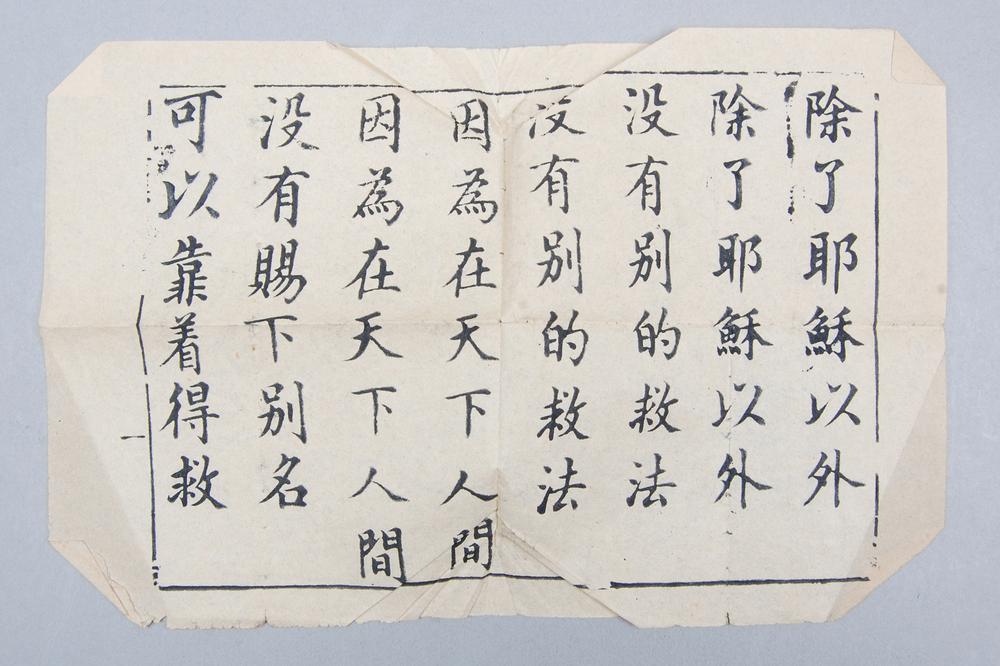 除了耶穌以外
除了耶穌以外
没有別的救法
没有別的救法
因為在天下人間
因為在天下人間
没有賜下別名
可以靠着得救